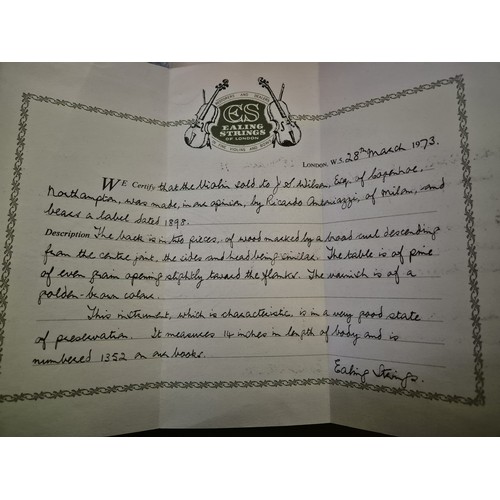 DESIGNERS AND DEALERS
ES
EALING
STRINGS
OF LONDON
LONDON, W.5. 28th March 1973.
WE Certify that the Violin sold to J. S. Wilson, Esq. of
Northampton, was made, in our opinion, by Ricardo Antoniazzi, of Milan, and
bears a label dated 1898.
Description The back is in two pieces, of wood marked by a broad curl descending
from the centre joint, the sides and head being similar. The table is of pine
of even grain opening slightly toward the flanks. The varnish is of a
golden-brown colour.
This instrument, which is characteristic, is in a very good state
of preservation. It measures 14 inches in length of body and is
numbered 1352 on our books.
Ealing Strings.